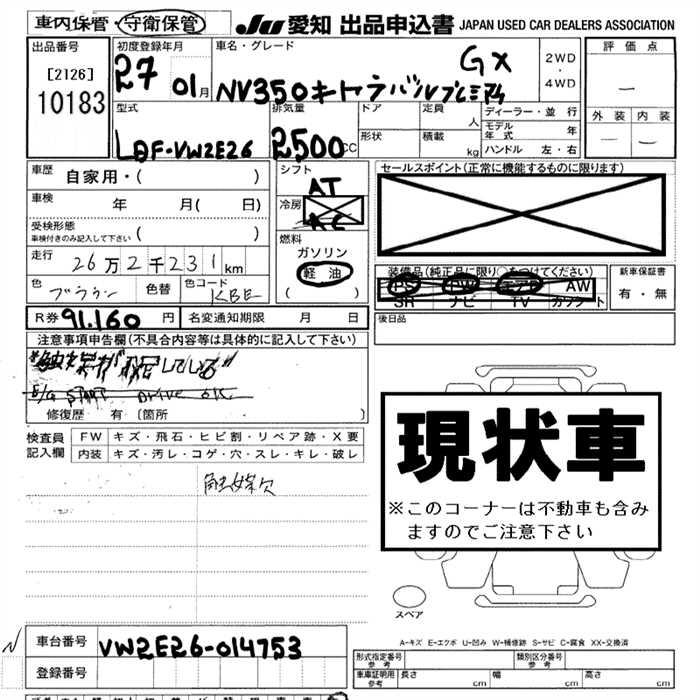 車内保管・守衛保管
JU 愛知 出品申込書 JAPAN USED CAR DEALERS ASSOCIATION
出品番号
[2126]
10183
初度登録年月
27 01月
車名・グレード
GX
NV350キャラバン
2WD
・
4WD
評価点
—
外装 内装
— —
型式
LDF-VW2E26
排気量
2500CC
ドア 定員 人
形状 積載 kg
ディーラー・並行
モデル年式 年
ハンドル 左・右
車歴
自家用・( )
車検 年 月( 日)
受検形態
車検付きのみ記入して下さい ( )
走行 26万2千231km
色 ブラウン 色替 色コード KBE
シフト
AT
冷房
AC
燃料
ガソリン
軽油
( )
セールスポイント(正常に機能するものに限ります)
装備品(純正品に限り○をつけてください)
PS PW エアB AW
SR ナビ TV カワシート
新車保証書
有・無
後日品
R券 91,160 円 名変通知期限 月 日
注意事項申告欄(不具合内容等は具体的に記入して下さい)
E/G START DRIVE OK
修復歴 有 〔箇所
検査員記入欄
FW キズ・飛石・ヒビ割・リペア跡・X要
内装 キズ・汚レ・コゲ・穴・スレ・キレ・破レ
触媒欠
現状車
※このコーナーは不動車も含みますのでご注意下さい
スペア
A-キズ E-エクボ U-凹み W-補修跡 S-サビ C-腐食 XX-交換済
N
車台番号 VW2E26-014753
登録番号
形式指定番号 参考
類別区分番号 参考
車庫証明用 参考 長さ cm 幅 cm 高さ cm